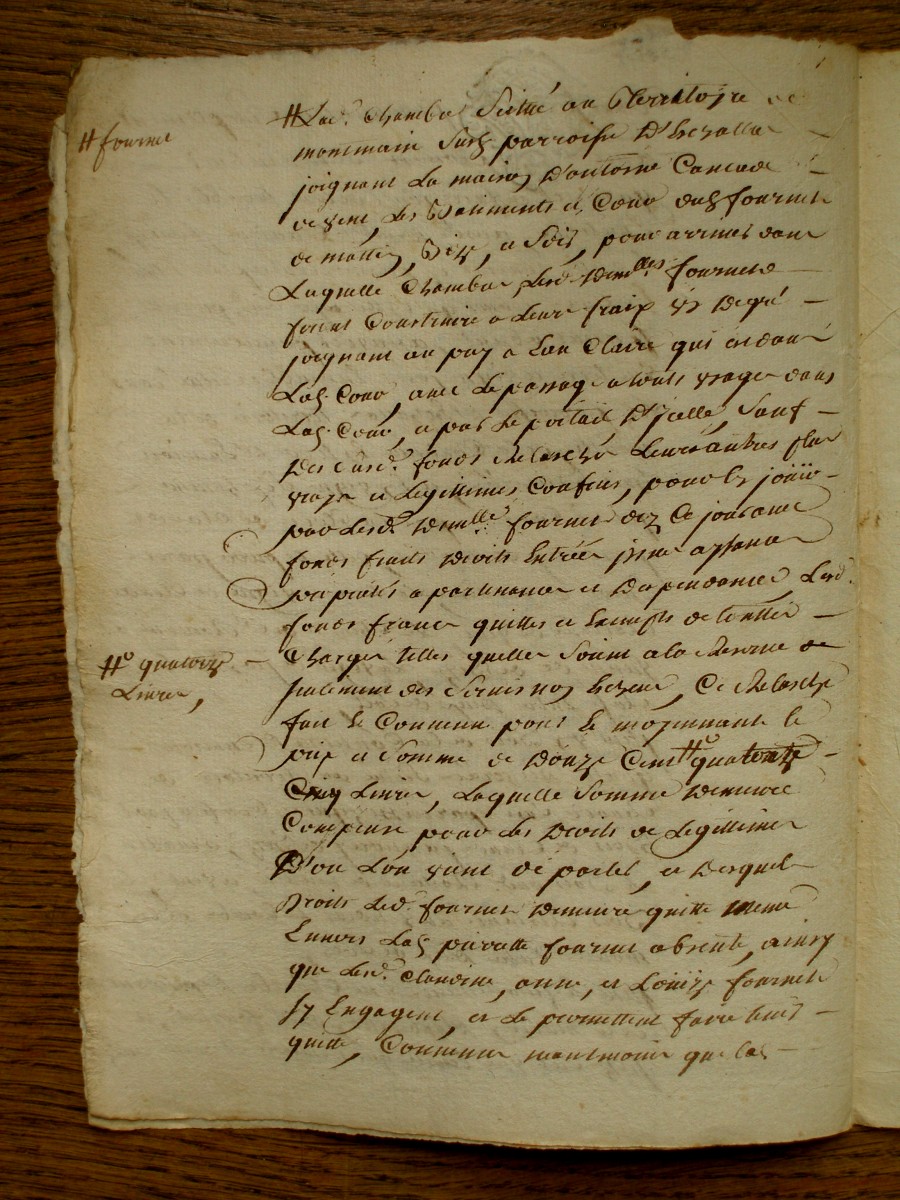 # fournie
# Lad.e Chambre Scitué au Territoire de
montmain Susd. parroisse D'hexalla
joignant La maison D'antoine Cancade
de vent, Les Batiments et Cour dud. fournier
de matin, Bize, et Soir, pour arriver dans
Laquelle Chambre Lesd. Demlles fournier
feront Construire a Leurs fraix Un Degré
joignant au puy a Eau Claire qui est dans
Lad. Cour, avec Le passage a touts usages dans
Lad. Cour, et par Le portail D'jcelle, Sauf
Des susd. fonds Relaschés Leurs autres plus
vrays et Legitimes Confins, pour En jouir
par Lesd. Demlle fournier dez Ce jour avec
fonds fruits Droits Entrée jssue
proprietés apartenances et Dependances, Lesd.
fonds francs quittes et Exempts de toutes
Charges telles quelles Soient a la Reserve du
paiement des Servis non Excedé, Ce Relasche
fait et Convenu pour et moyennant le
prix et Somme de Douze Cent # quatorze
#.o quatorze
Livres,
Cinq Livres, Laquelle Somme Demeure
Compensé pour Les Droits de Legitimes
D'ou L'on vient de parler, et Desquels
Droits Led. fournier Demeure quitte meme
Envers Lad. pierrette fournier absente, ainsy
que Lesd. Claudine, anne, et Loüize fournier
s'y Engagent, et Le promettent faire tenir
quitte, Convenu neantmoins que Lad.